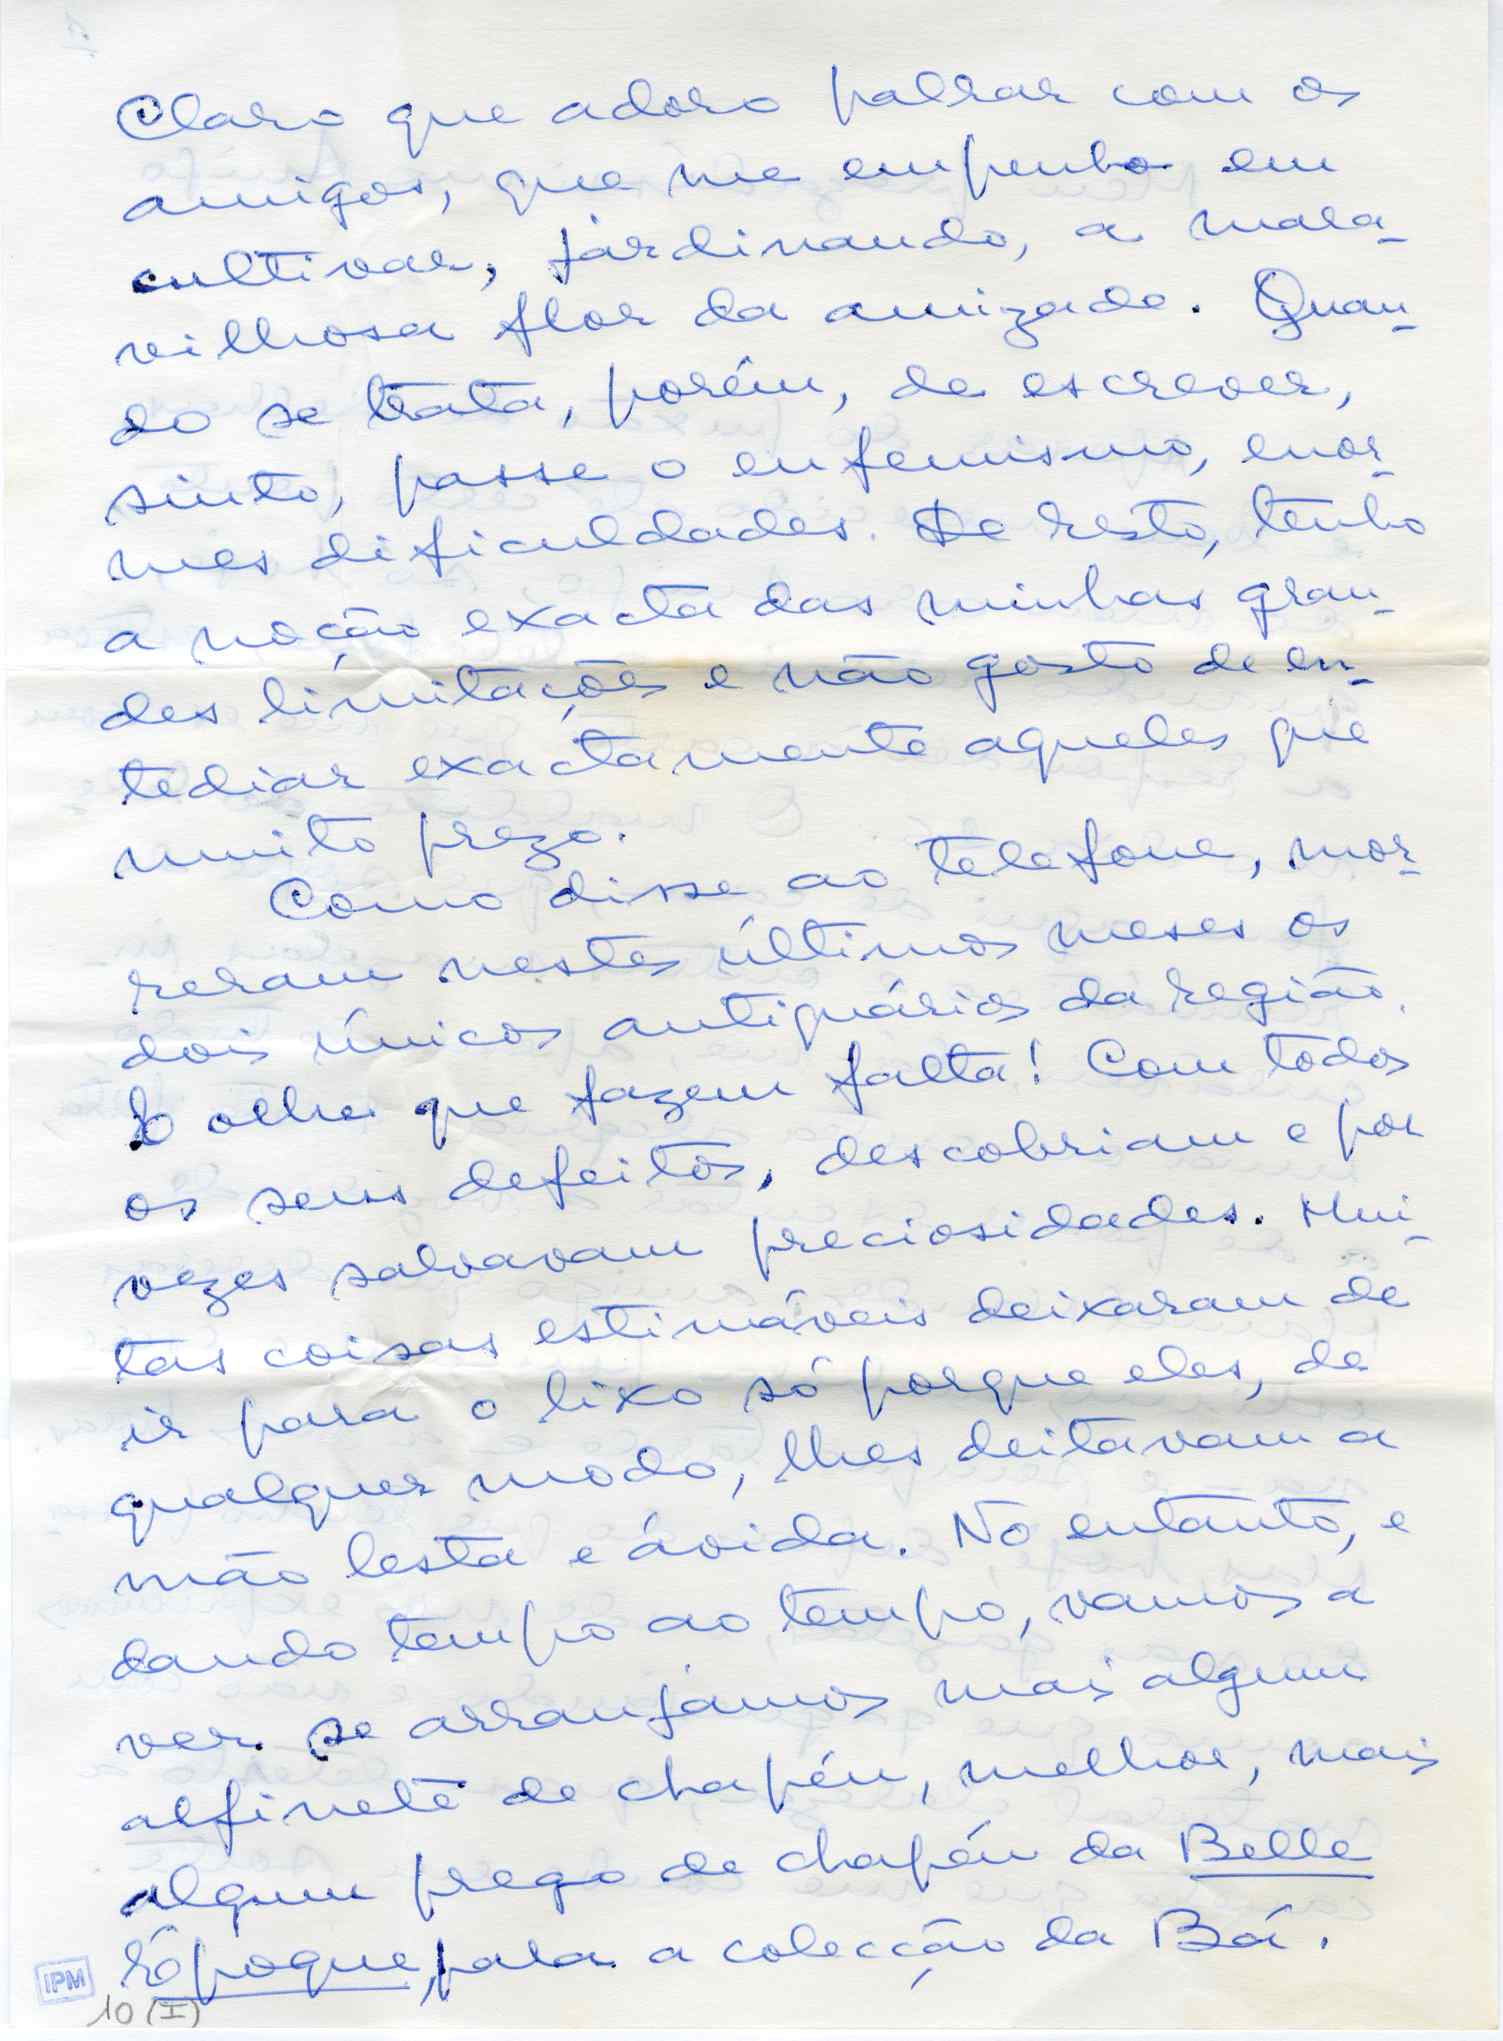 Claro que adoro palrar com os
amigos, que me empenho em
cultivar, jardinando, a mara-
vilhosa flor da amizade. Quan-
do se trata, porém, de escrever,
sinto, passe o eufemismo, enor-
mes dificuldades. De resto, tenho
a noção exacta das minhas gran-
des limitações e não gosto de en-
tediar exactamente aqueles que
muito prezo.
Como disse ao telefone, mor-
reram nestes últimos meses os
dois únicos antiquários da região.
E olhe que fazem falta! Com todos
os seus defeitos, descobriam e por
vezes salvavam preciosidades. Mui-
tas coisas estimáveis deixaram de
ir para o lixo só porque eles, de
qualquer modo, lhes deitavam a
mão lesta e ávida. No entanto, e
dando tempo ao tempo, vamos a
ver se arranjámos mais algum
alfinete de chapéu, melhor, mais
algum prego de chapéu da Belle
Époque, para a colecção da Bá.
IPM
10 (I)